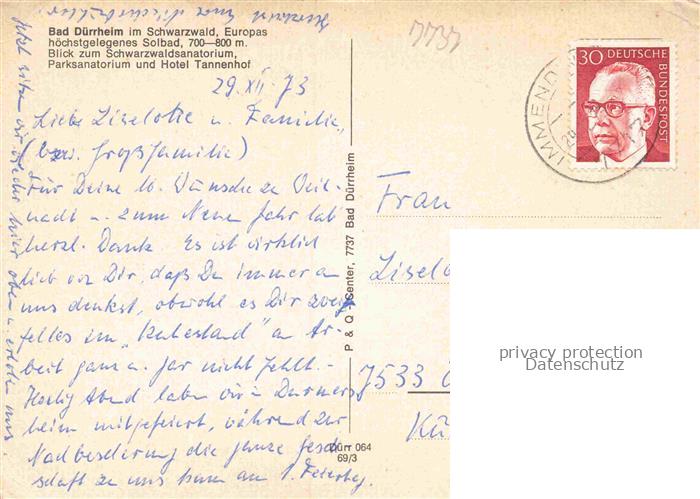 Bad Dürrheim im Schwarzwald, Europas
höchstgelegenes Solbad, 700—800 m.
Blick zum Schwarzwaldsanatorium,
Parksanatorium und Hotel Tannenhof
7737
29. XII. 73
Liebe Liselotte u. Familie,
(bzw. Großfamilie)
Für Deine lb. Wünsche zu Weih-
nacht u. zum Neuen Jahr lab
herzl. Dank. Es ist wirklich
lieb von Dir, daß Du immer an
uns denkst, obwohl es Dir zwei-
felles im „Ruhestand" an Ar-
beit ganz u. gar nicht fehlt. -
Heilig Abend haben wir in Durmers
heim mitgefeiert, während zur
Nachbescherung die ganze Gesell
schaft zu uns kam am 1. Feiertag.
Jetzt sitzen wir wieder hier oben u. erholen uns
P & Q Center, 7737 Bad Dürrheim
Dürr 064
69/3
30 DEUTSCHE
BUNDESPOST
IMMEND
29
Frau
Liselo
7533
privacy protection
Datenschutz